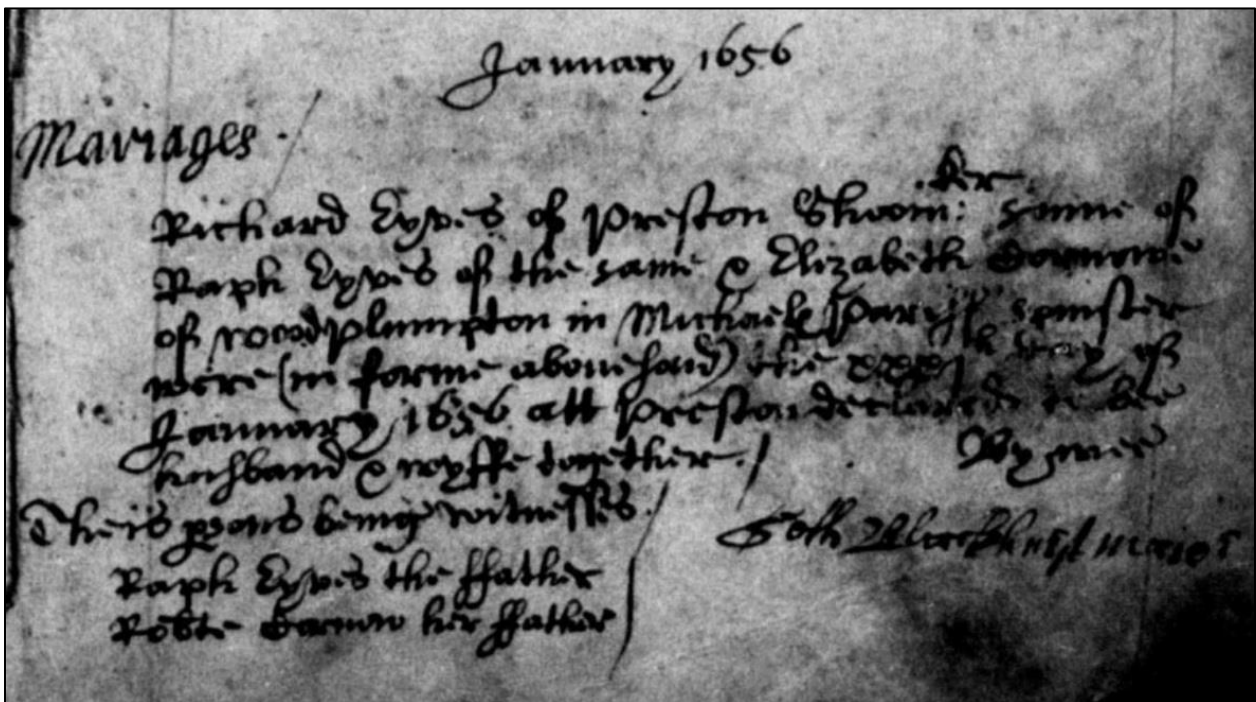 January 1656
Mariages
ker
Richard Eyves of Preston Shoom: sonne of
Raph Eyves of the same & Elizabeth
of woodplumpton in Michaels parish spinster
were (in forme abovesaid) the xxxjth day of
January 1656 att Preston declared to bee
husband & wyffe together.
By mee
Theis psons being witnesses.
Edth Blackhurst maior
Raph Eyves the ffather
Robte her ffather